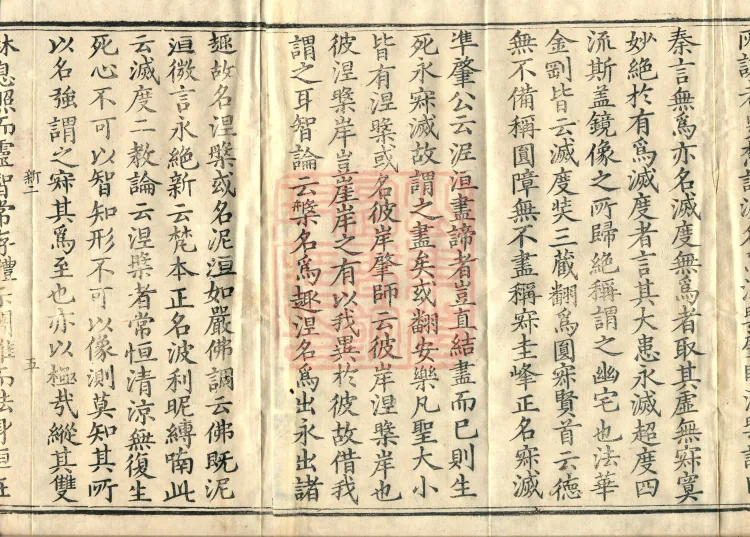 秦言無爲亦名滅度無爲者取其虛無寂寞
妙絕於有爲滅度者言其大患永滅超度四
流斯盖鏡像之所歸絕稱謂之幽宅也法華
金剛皆云滅度奘三藏翻爲圓寂賢首云德
無不備稱圓障無不盡稱寂圭峰正名寂滅
準肇公云泥洹盡諦者豈直結盡而已則生
死永寂滅故謂之盡矣或翻安樂凡聖大小
皆有涅槃或名彼岸肇師云彼岸涅槃岸也
彼涅槃岸豈崖岸之有以我異於彼故借我
謂之耳智論云槃名爲趣涅名爲出永出諸
趣故名涅槃或名泥洹如嚴佛調云佛既泥
洹微言永絕新云梵本正名波利昵縛喃此
云滅度二教論云涅槃者常恒清涼無復生
死心不可以智知形不可以像測莫知其所
以名強謂之寂其爲至也亦以極哉縱其雙
新二 五